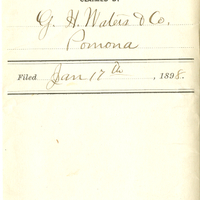 CLAIMED BY
G. H. Waters & Co.
Pomona
Filed Jan 17th, 1898.